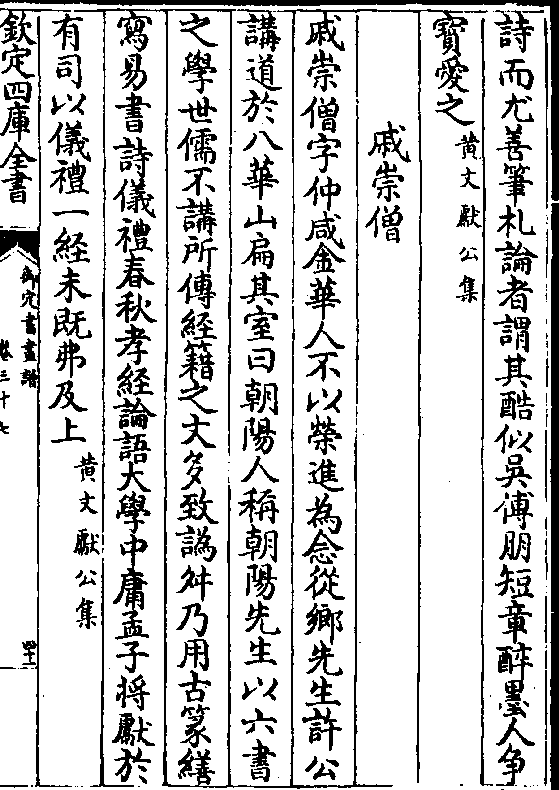 詩而尤善筆札論者謂其酷似吳傅朋短章醉墨人争
寳愛之黄文獻公集
戚崇僧
戚崇僧字仲咸金華人不以榮進為念從鄉先生許公
講道於八華山扁其室曰朝陽人稱朝陽先生以六書
之學世儒不講所傳經籍之文多致譌舛乃用古篆繕
寫易書詩儀禮春秋孝經論語大學中庸孟子将獻於
有司以儀禮一經未既弗及上黄文獻公集
欽定四庫全書
御定書畫譜
卷三十七